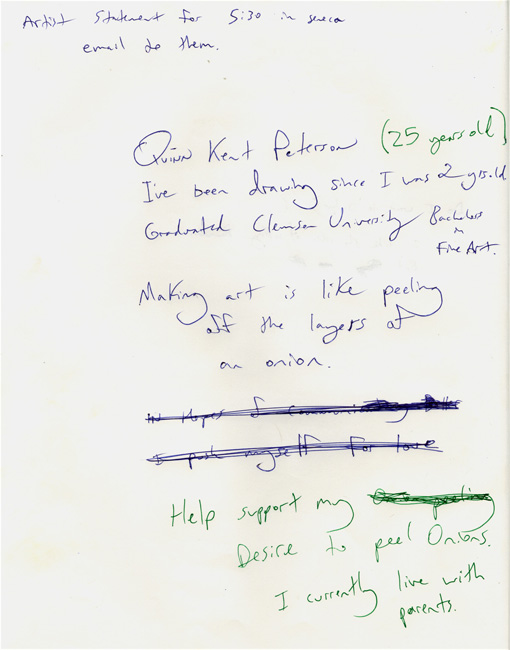 Artist Statement for 5:30 in seneca
email to them.
Quinn Kent Peterson (25 years old)
I've been drawing since I was 2 yrs.old
Graduated Clemson University Bachelors
in
Fine Art.
Making art is like peeling
off the layers of
an onion.
in Hopes of
I push myself for love
Help support my
Desire to peel Onions.
I currently live with
parents.